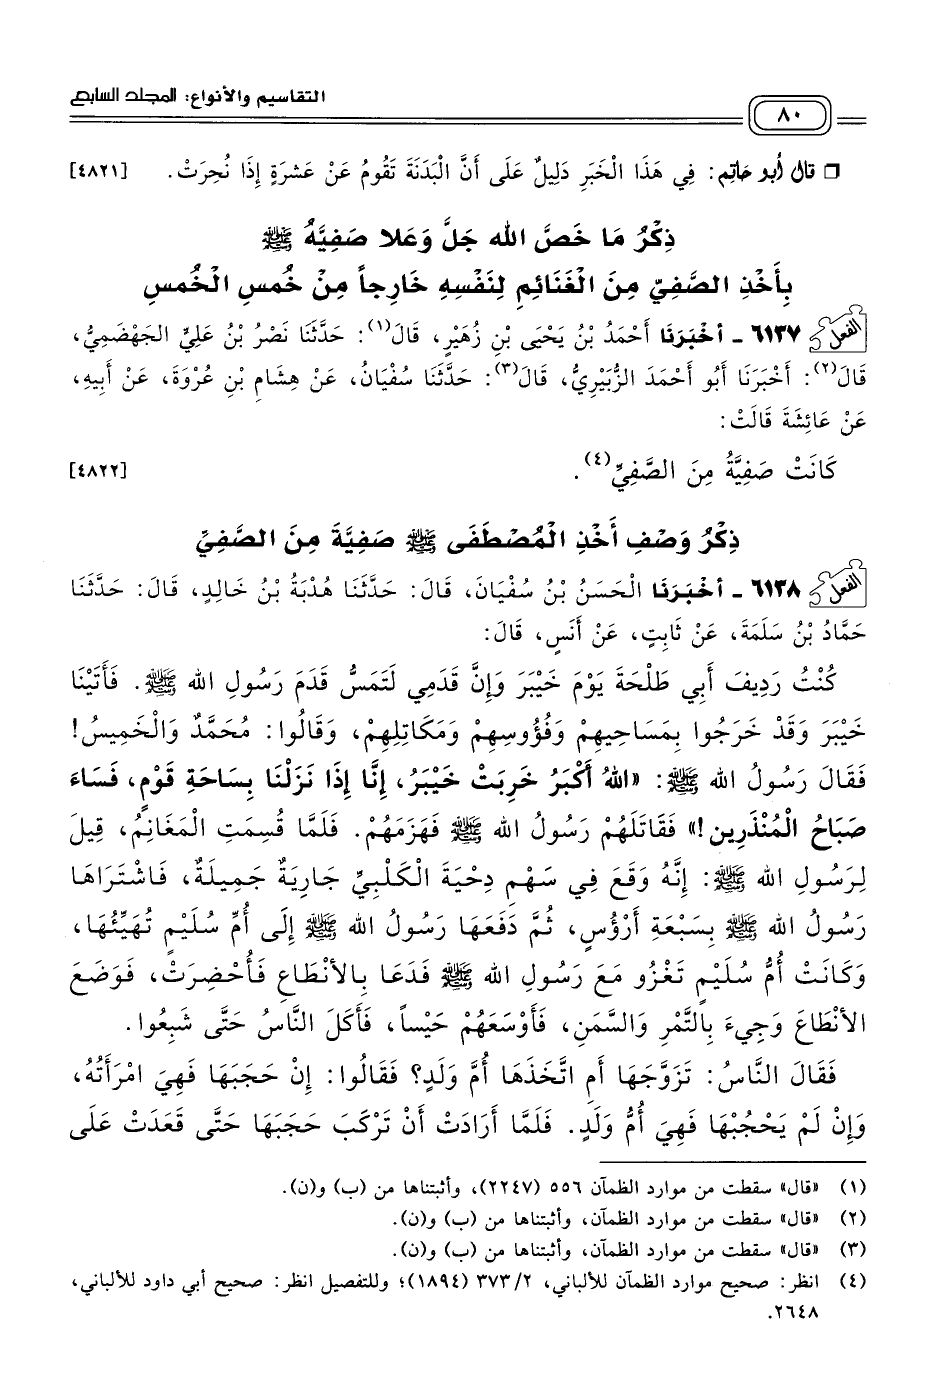 التقاسيم والأنواع: المجلد السابع
٨٠
❒ قال أبو حاتم: فِي هَذَا الْخَبَرِ دَلِيلٌ عَلَى أَنَّ الْبَدَنَةَ تَقُومُ عَنْ عَشَرَةٍ إِذَا نُحِرَتْ. [٤٨٢١]
ذِكْرُ مَا خَصَّ اللَّه جَلَّ وَعَلا صَفِيَّهُ ﷺ
بِأَخْذِ الصَّفِيِّ مِنَ الْغَنَائِمِ لِنَفْسِهِ خَارِجاً مِنْ خُمسِ الْخُمسِ
الفعل ٦١٣٧ - أخْبَرَنَا أَحْمَدُ بْنُ يَحْيَى بْنِ زُهَيْرٍ، قَالَ(١): حَدَّثَنَا نَصْرُ بْنُ عَلِيٍّ الجَهْضَمِيُّ،
قَالَ(٢): أَخْبَرَنَا أَبُو أَحْمَدَ الزُّبَيْرِيُّ، قَالَ(٣): حَدَّثَنَا سُفْيَانُ، عَنْ هِشَامِ بْنِ عُرْوَةَ، عَنْ أَبِيهِ،
عَنْ عَائِشَةَ قَالَتْ:
كَانَتْ صَفِيَّةُ مِنَ الصَّفِيِّ(٤). [٤٨٢٢]
ذِكْرُ وَصْفِ أَخْذِ الْمُصْطَفَى ﷺ صَفِيَّةَ مِنَ الصَّفِيِّ
الفعل ٦١٣٨ - أخْبَرَنَا الْحَسَنُ بْنُ سُفْيَانَ، قَالَ: حَدَّثَنَا هُدْبَةُ بْنُ خَالِدٍ، قَالَ: حَدَّثَنَا
حَمَّادُ بْنُ سَلَمَةَ، عَنْ ثَابِتٍ، عَنْ أَنَسٍ، قَالَ:
كُنْتُ رَدِيفَ أَبِي طَلْحَةَ يَوْمَ خَيْبَرَ وَإِنَّ قَدَمِي لَتَمَسُّ قَدَمَ رَسُولِ الله ﷺ. فَأَتَيْنَا
خَيْبَرَ وَقَدْ خَرَجُوا بِمَسَاحِيهِمْ وَفُؤُوسِهِمْ وَمَكَاتِلِهِمْ، وَقَالُوا: مُحَمَّدٌ وَالْخَمِيسُ!
فَقَالَ رَسُولُ الله ﷺ: «اللهُ أَكْبَرُ خَرِبَتْ خَيْبَرُ، إِنَّا إِذَا نَزَلْنَا بِسَاحَةِ قَوْمٍ، فَسَاءَ
صَبَاحُ الْمُنْذَرِين!» فَقَاتَلَهُمْ رَسُولُ الله ﷺ فَهَزَمَهُمْ. فَلَمَّا قُسِمَتِ الْمَغَانِمُ، قِيلَ
لِرَسُولِ الله ﷺ: إِنَّهُ وَقَعَ فِي سَهْمِ دِحْيَةَ الْكَلْبِيِّ جَارِيَةٌ جَمِيلَةٌ، فَاشْتَرَاهَا
رَسُولُ الله ﷺ بِسَبْعَةِ أَرْؤُسٍ، ثُمَّ دَفَعَهَا رَسُولُ الله ﷺ إِلَى أُمِّ سُلَيْمٍ تُهَيِّئُهَا،
وَكَانَتْ أُمُّ سُلَيْمٍ تَغْزُو مَعَ رَسُولِ الله ﷺ فَدَعَا بِالأَنْطَاعِ فَأُحْضِرَتْ، فَوَضَعَ
الأَنْطَاعَ وَجِيءَ بِالتَّمْرِ وَالسَّمَنِ، فَأَوْسَعَهُمْ حَيْساً، فَأَكَلَ النَّاسُ حَتَّى شَبِعُوا.
فَقَالَ النَّاسُ: تَزَوَّجَهَا أَمِ اتَّخَذَهَا أُمَّ وَلَدٍ؟ فَقَالُوا: إِنْ حَجَبَهَا فَهِيَ امْرَأَتُهُ،
وَإِنْ لَمْ يَحْجُبْهَا فَهِيَ أُمُّ وَلَدٍ. فَلَمَّا أَرَادَتْ أَنْ تَرْكَبَ حَجَبَهَا حَتَّى قَعَدَتْ عَلَى
(١) «قال» سقطت من موارد الظمآن ٥٥٦ (٢٢٤٧)، وأثبتناها من (ب) و(ن).
(٢) «قال» سقطت من موارد الظمآن، وأثبتناها من (ب) و(ن).
(٣) «قال» سقطت من موارد الظمآن، وأثبتناها من (ب) و(ن).
(٤) انظر: صحيح موارد الظمآن للألباني، ٣٧٣/٢ (١٨٩٤)؛ وللتفصيل انظر: صحيح أبي داود للألباني،
٢٦٤٨.